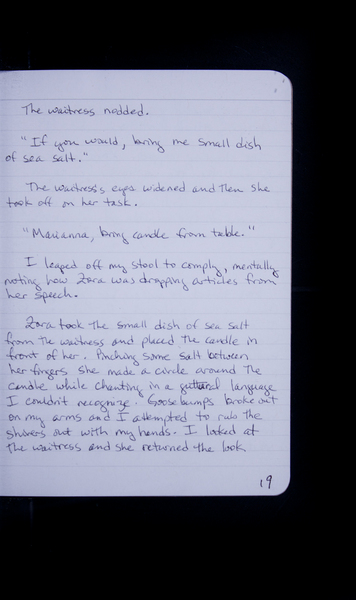 The waitress nodded.
"If you would, bring me small dish
of sea salt."
The waitress's eyes widened and then she
took off on her task.
"Marianna, bring candle from table."
I leaped off my stool to comply, mentally
noting how Zara was dropping articles from
her speech.
Zara took the small dish of sea salt
from the waitress and placed the candle in
front of her. Pinching some salt between
her fingers she made a circle around the
candle while chanting in a guttural language
I couldn't recognize. Goosebumps broke out
on my arms and I attempted to rub the
shivers out with my hands. I looked at
the waitress and she returned the look
19